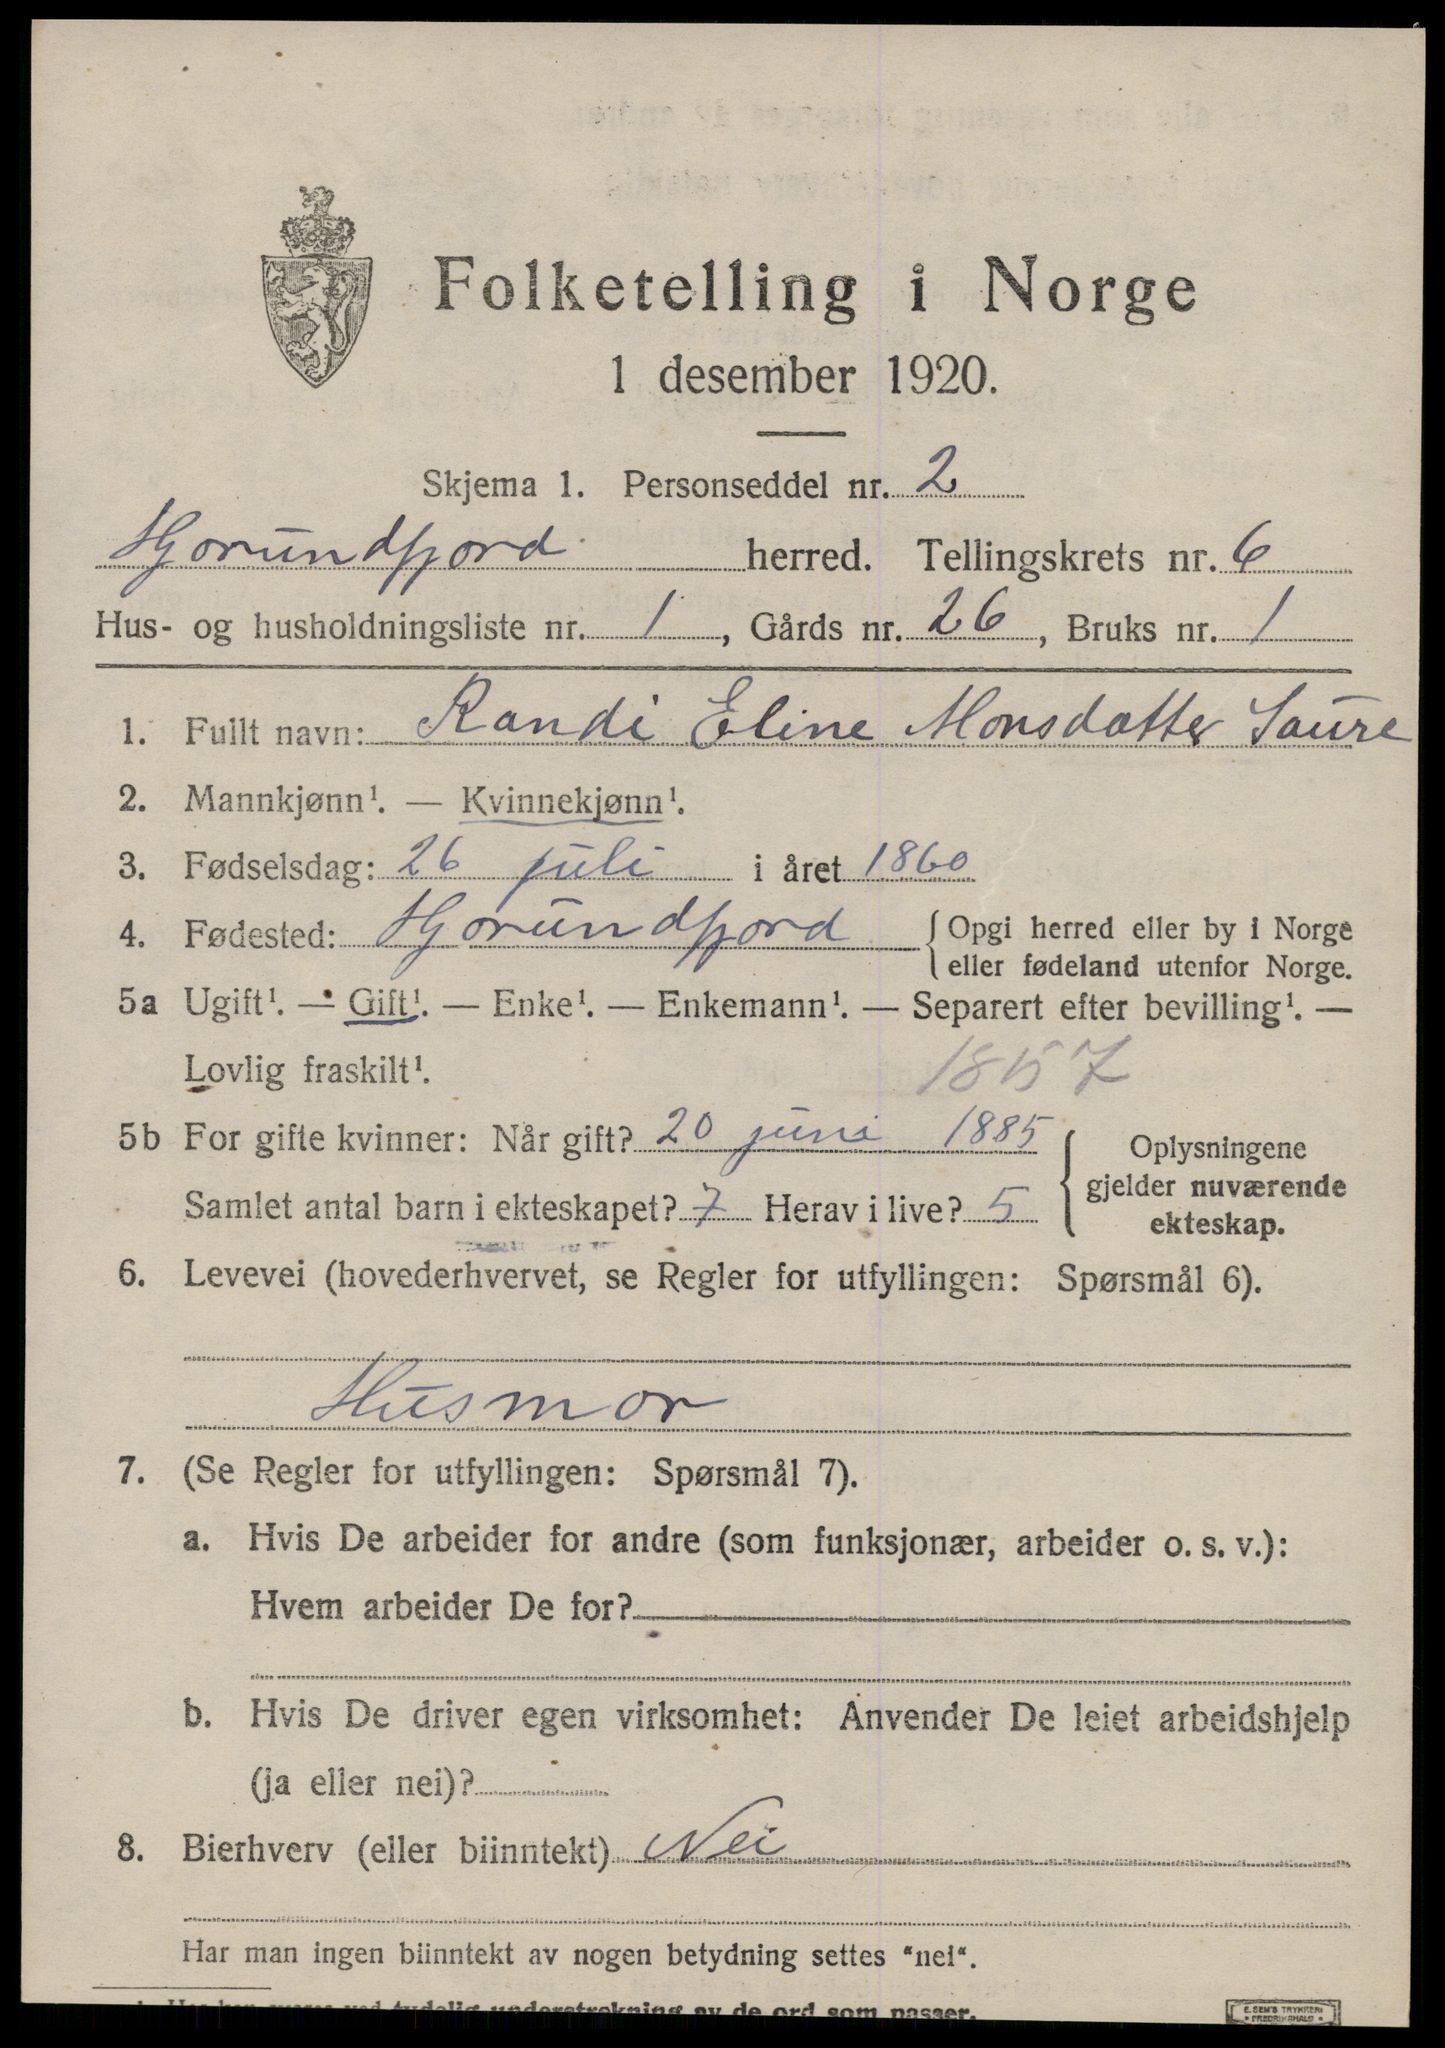 Folketelling i Norge
1 desember 1920.
Skjema 1. Personseddel nr. 2
Hjorundfjord herred. Tellingskrets nr. 6
Hus- og husholdningsliste nr. 1, Gårds nr. 26, Bruks nr. 1
1. Fullt navn: Randi Eline Monsdatter Saure
2. Mannkjønn¹. — Kvinnekjønn¹.
3. Fødselsdag: 26 juli i året 1860
4. Fødested: Hjorundfjord { Opgi herred eller by i Norge
eller fødeland utenfor Norge.
5a Ugift¹. — Gift¹. — Enke¹. — Enkemann¹. — Separert efter bevilling¹. —
Lovlig fraskilt¹. 1857
5b For gifte kvinner: Når gift? 20 juni 1885
Samlet antal barn i ekteskapet? 7 Herav i live? 5
{ Oplysningene
gjelder nuværende
ekteskap.
6. Levevei (hovederhvervet, se Regler for utfyllingen: Spørsmål 6).
Husmor
7. (Se Regler for utfyllingen: Spørsmål 7).
a. Hvis De arbeider for andre (som funksjonær, arbeider o. s. v.):
Hvem arbeider De for?
b. Hvis De driver egen virksomhet: Anvender De leiet arbeidshjelp
(ja eller nei)?
8. Bierhverv (eller biinntekt) Nei
Har man ingen biinntekt av nogen betydning settes "nei".
ved tydelig understrekning av de ord som passer.
E. SEM'S TRYKKERI
• FREDRIKSHALD •